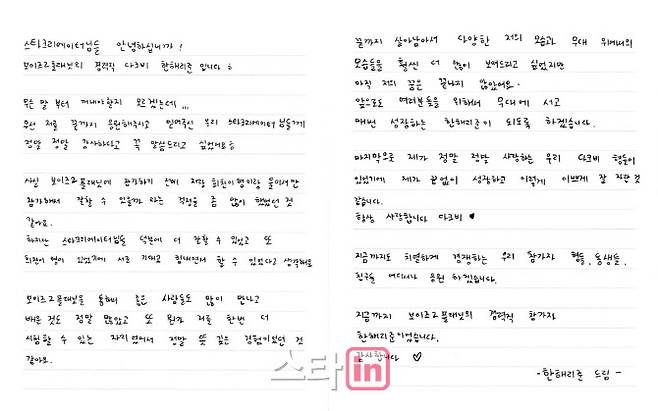 스타크리에이터님들 안녕하십니까!
보이즈2플래닛의 경력직 다크비 한해리준 입니다 :)
무슨 말 부터 꺼내야할지 모르겠는데...
우선 저를 끝까지 응원해주시고 믿어주신 우리 스타크리에이터님들께
정말 정말 감사하다고 꼭 말씀드리고 싶었어요 :)
사실 보이즈2플래닛에 참가하기 전에 저랑 희찬이형이랑 둘이서만
참가해서 잘할 수 있을까 라는 걱정을 좀 많이 했었던 것
같아요.
하지만 스타크리에이터님들 덕분에 더 잘할 수 있었고 또
희찬이 형이 있었기에 서로 기대고 힘내면서 할 수 있었다고 생각해요
보이즈2플래닛을 통해서 좋은 사람들도 많이 만나고
배운 것도 정말 많았고 또 뭔가 저를 한번 더
시험할 수 있는 자리였어서 정말 뜻 깊은 경험이었던 것
같아요.
끝까지 살아남아서 다양한 저의 모습과 무대 위에서의
모습들을 훨씬 더 많이 보여드리고 싶었지만
아직 저의 꿈은 끝나지 않았어요.
앞으로도 여러분들을 위해서 무대에 서고
매번 성장하는 한해리준이 되도록 하겠습니다.
마지막으로 제가 정말 정말 사랑하는 우리 다크비 형들이
있었기에 제가 끝없이 성장하고 이렇게 이쁘게 잘 자란 것
같습니다.
항상 사랑합니다 다크비 ♥
지금까지도 치열하게 경쟁하는 우리 참가자 형들, 동생들,
친구들 어디서나 응원 하겠습니다.
지금까지 보이즈2플래닛의 경력직 참가자
한해리준이었습니다.
감사합니다 ♡
-한해리준 드림-
스타in